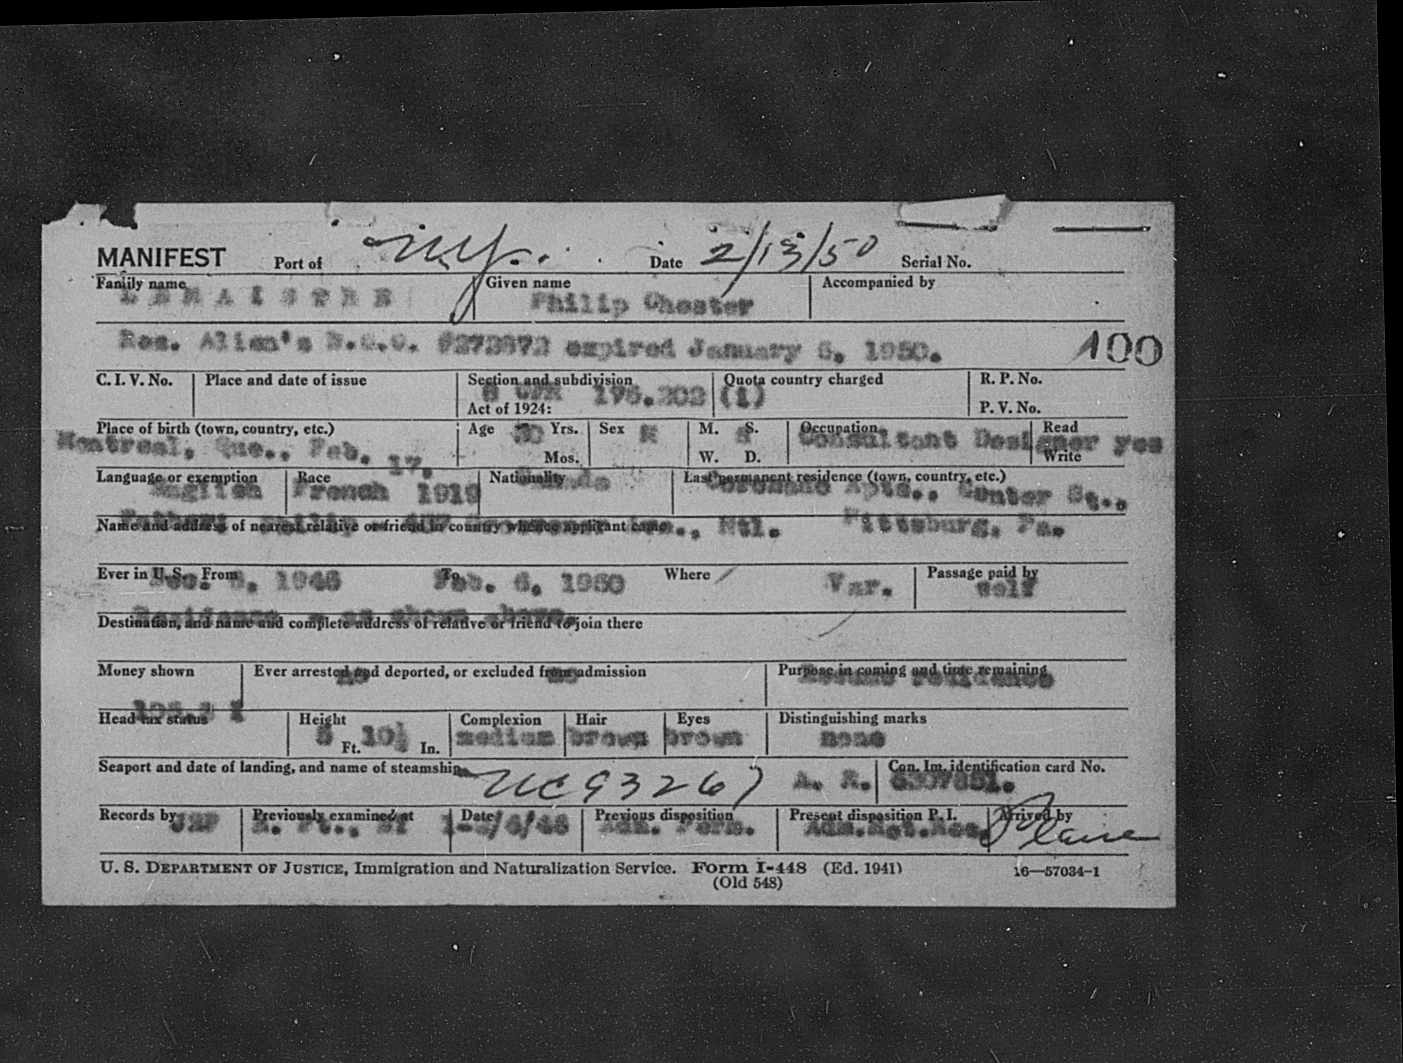 MANIFEST Port of N.Y. Date 2/13/50 Serial No.
Family name Given name Accompanied by
LEMAISTRE Philip Chester
Res. Alien's B.C.C. expired January 5, 1950. 100
C. I. V. No. Place and date of issue Section and subdivision Quota country charged R. P. No.
8 CFR 175.202 (1)
Act of 1924: P. V. No.
Place of birth (town, country, etc.) Age Yrs. Sex M. S. Occupation Read
Montreal, Que., Feb. 17, 30 M S Consultant Designer yes
Mos. W. D. Write
Language or exemption Race Nationality Last permanent residence (town, country, etc.)
English French 1919 Canada Apts., Center Sq.,
Name and address of nearest relative or friend in country whence applicant came
Father: Philip Mtl. Pittsburg, Pa.
Ever in U. S. From To Where Passage paid by
1946 Feb. 6, 1950 Var. self
Residence - as shown above.
Destination, and name and complete address of relative or friend to join there
Money shown Ever arrested and deported, or excluded from admission Purpose in coming and time remaining
no no Resume residence
Head tax status Height Complexion Hair Eyes Distinguishing marks
5 Ft. 10½ In. medium brown brown none
Seaport and date of landing, and name of steamship Con. Im. identification card No.
A. R.
Records by Previously examined at Date Previous disposition Present disposition P. I. Arrived by
Adm. Perm. Adm.Ret.Res.
U. S. DEPARTMENT OF JUSTICE, Immigration and Naturalization Service. Form I-448 (Ed. 1941) 16—57034-1
(Old 548)